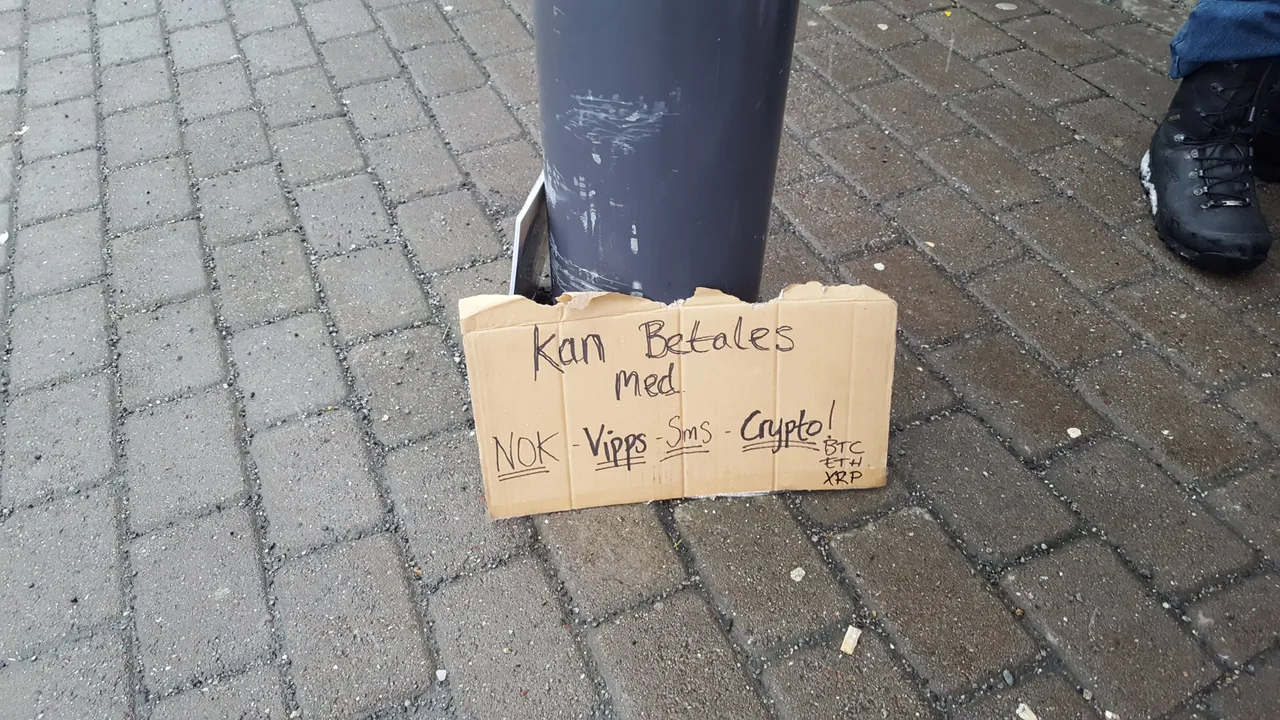 Kan Betales
med
NOK - Vipps - Sms - Crypto!
BTC
ETH
XRP